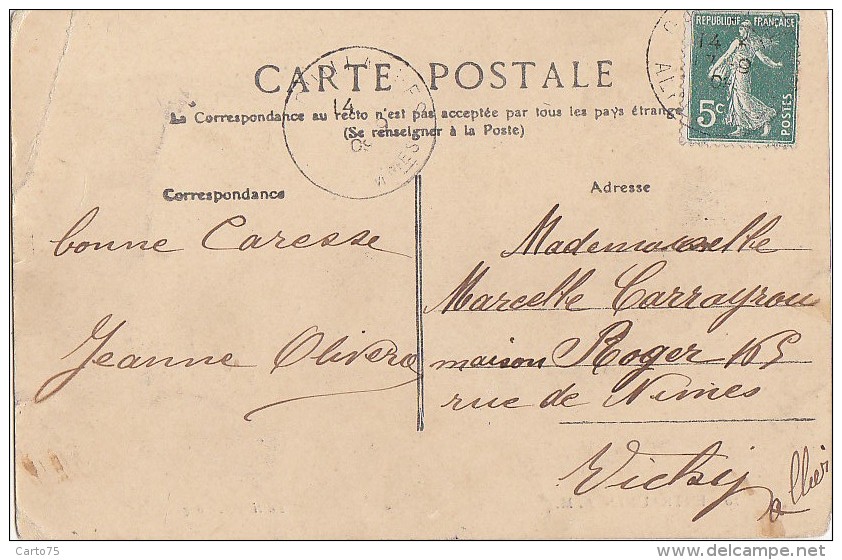 RÉPUBLIQUE FRANÇAISE
5c
POSTES
14
CARTE POSTALE
La Correspondance au recto n'est pas acceptée par tous les pays étrange
(Se renseigner à la Poste)
14
09
Correspondance
bonne Caresse
Jeanne Olivero
Adresse
Mademoiselle
Marcelle Carrayrou
maison Roger 165
rue de Nimes
Vichy
allier
Carto75
delcampe.net